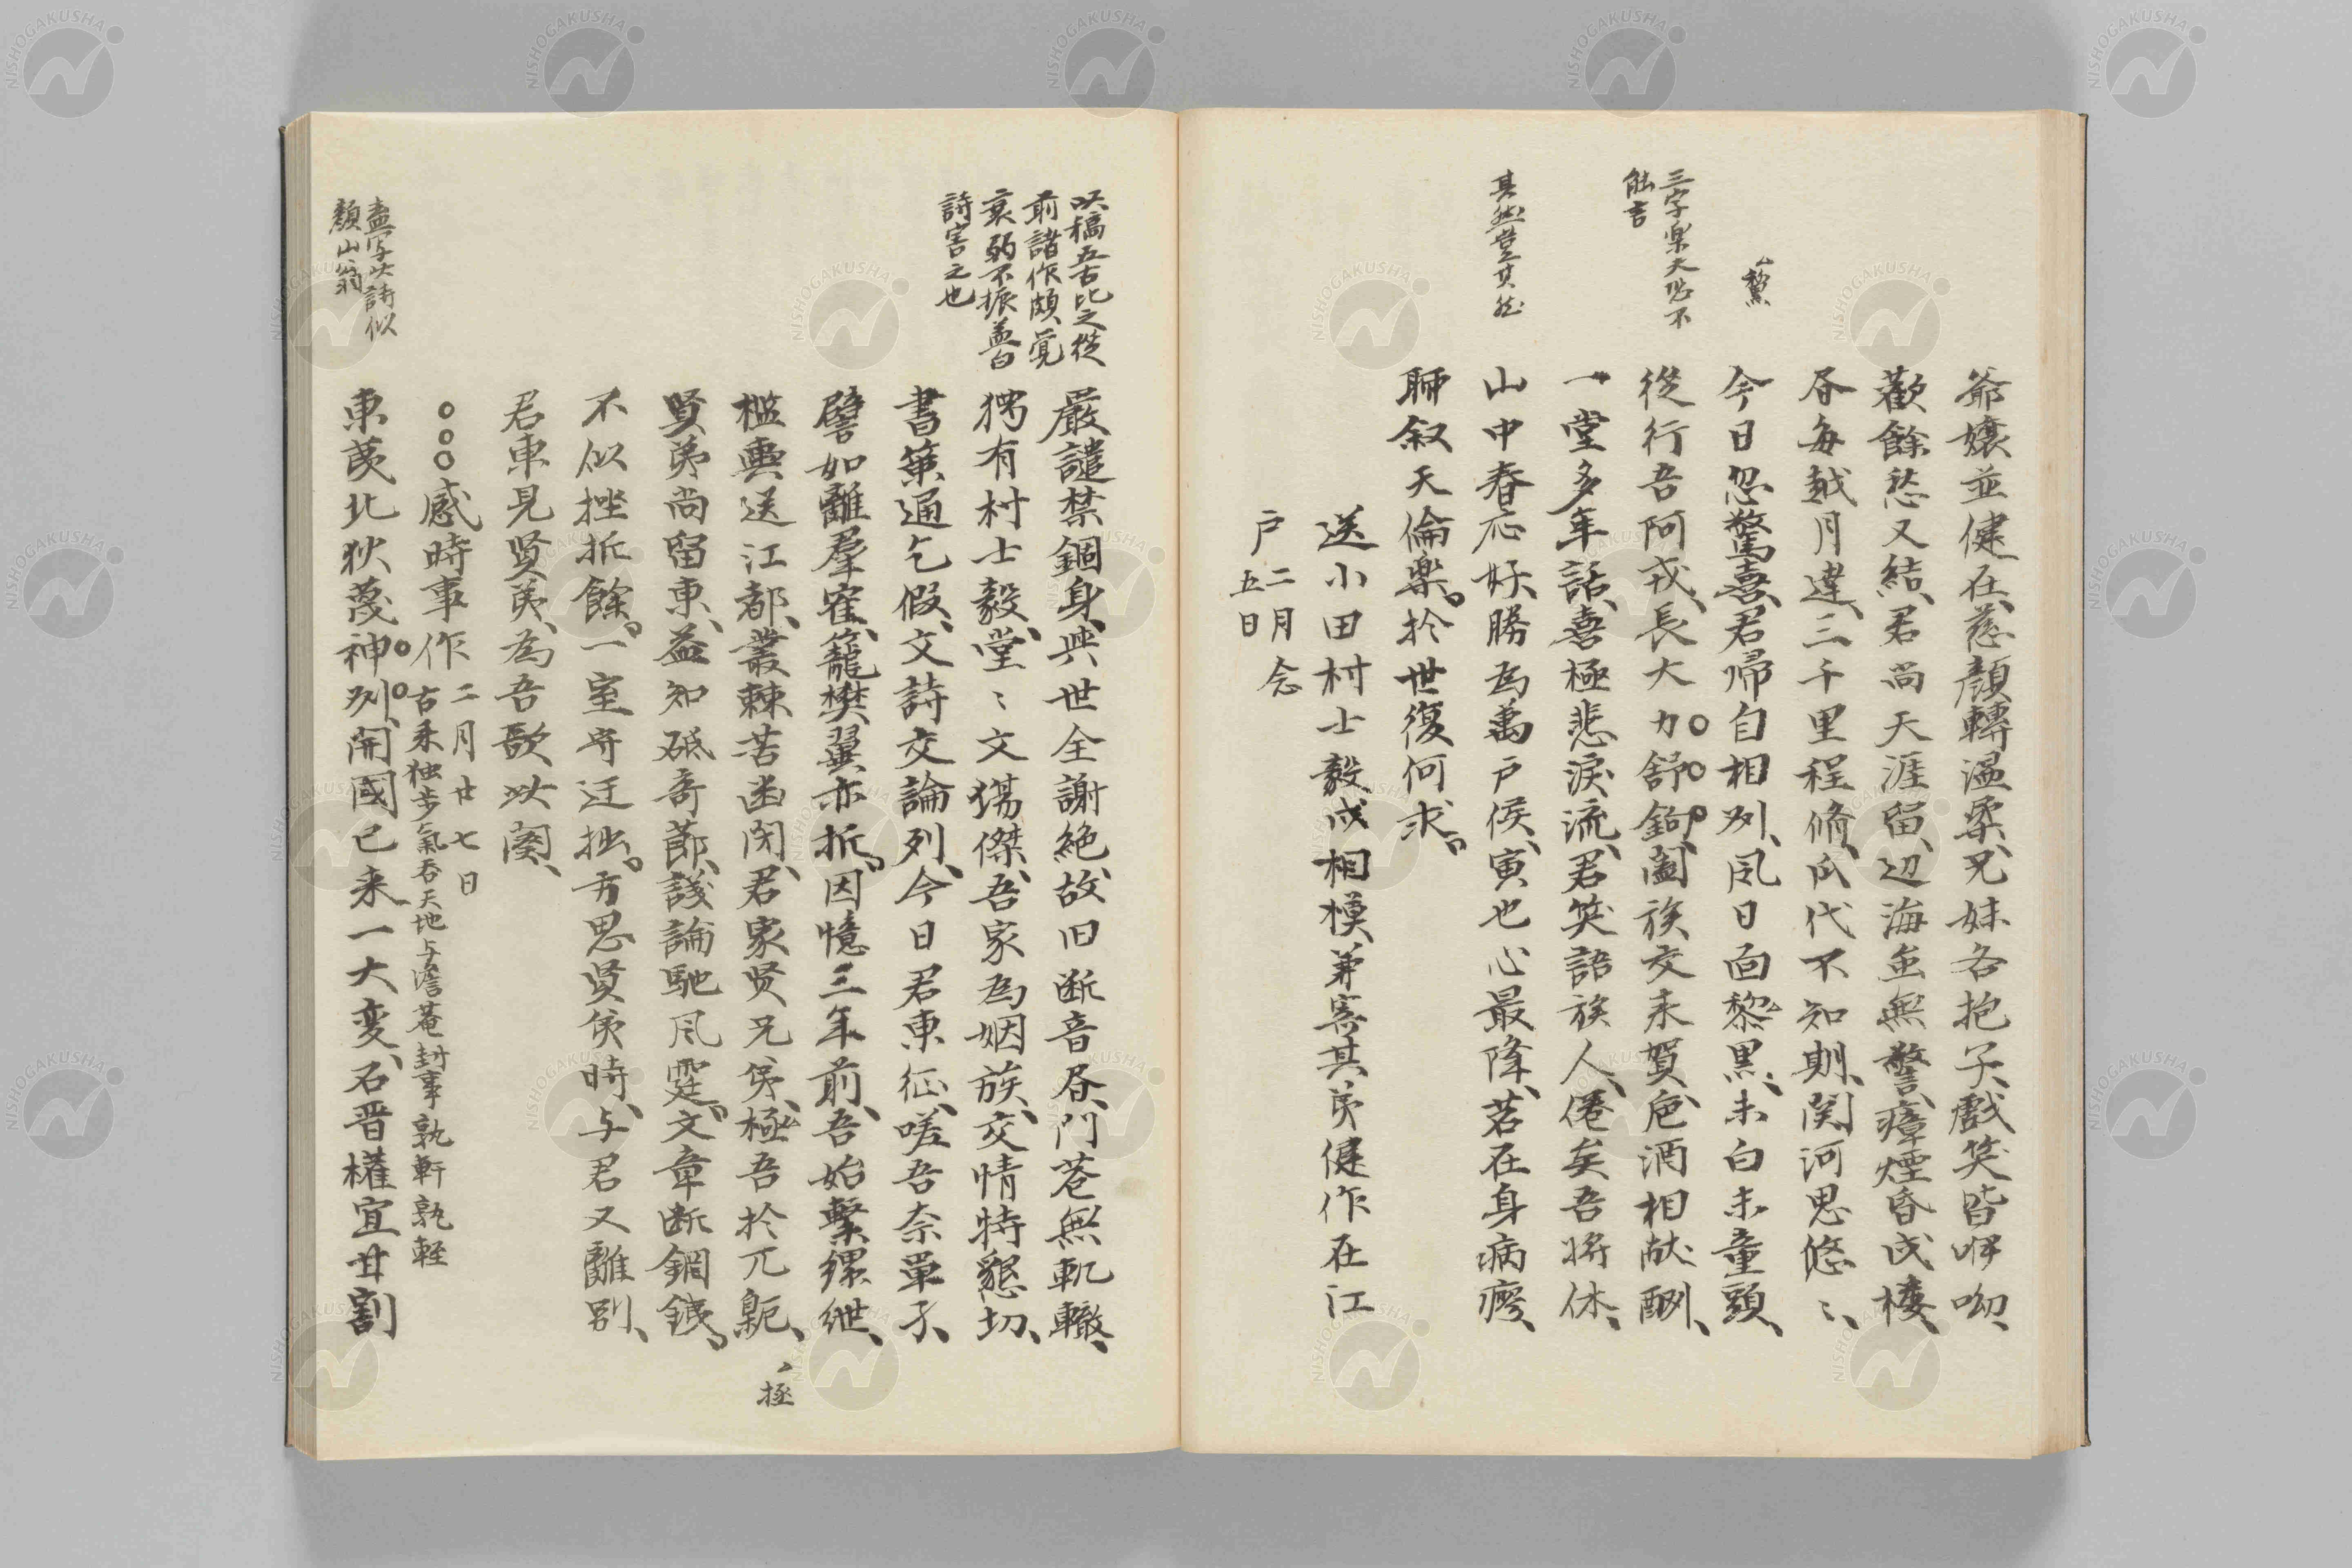 黧
三字畢天恐不
能言
其然豈其然
爺嬢並健在、慈顔轉温柔、兄妹各抱子、戲笑皆咿呦、
歡餘愁又結、君尚天涯留、辺海虽無警、瘴煙昏戍樓、
昏每越月達、三千里程脩、瓜代不知期、関河思悠〻、
今日忽驚喜、君帰自相刕、風日面黎黒、未白未童頭、
從行吾阿戎、長大力舒鉤、闔族交来賀、巵酒相献酬、
一堂多年話、喜極悲淚流、君笑語族人、倦矣吾将休、
山中春応好、勝為萬戸侯、寅也心最降、若在身病瘳、
聊叙天倫楽。於世復何求。
送小田村士毅戍相模、兼寄其弟健作在江
戸 二月念
五日
呌稿五古比之從
前諸作頗覚
衰弱不振蓋白
詩害之也
嚴譴禁錮身、與世全謝絶、故旧断音昏、門巷無軌轍、
独有村士毅、堂〻文場傑、吾家為姻族、交情特懇切、
書策通乞假、文詩交論列、今日君東征、嗟吾奈單孑、
譬如離羣寉、籠樊翼亦折。因憶三年前、吾始繫縲紲、
檻輿送江都、叢棘苦幽閉、君家贤兄弟、極吾於兀臲、
、拯
贤弟尚留東、益知砥奇節、議論馳風霆、文章断鋼鐵。
不似挫折餘。一室守迂拙。方思贤侯時、与君又離別、
君東見贤弟、為吾歌此闋、
○○○感時事作 二月廿七日
古来独步氣吞天地与澹菴封事孰軒孰輊
盍写此詩似
顏山翁
東羑北狄蔑神刕、開國已来一大变、石晋權宜甘割